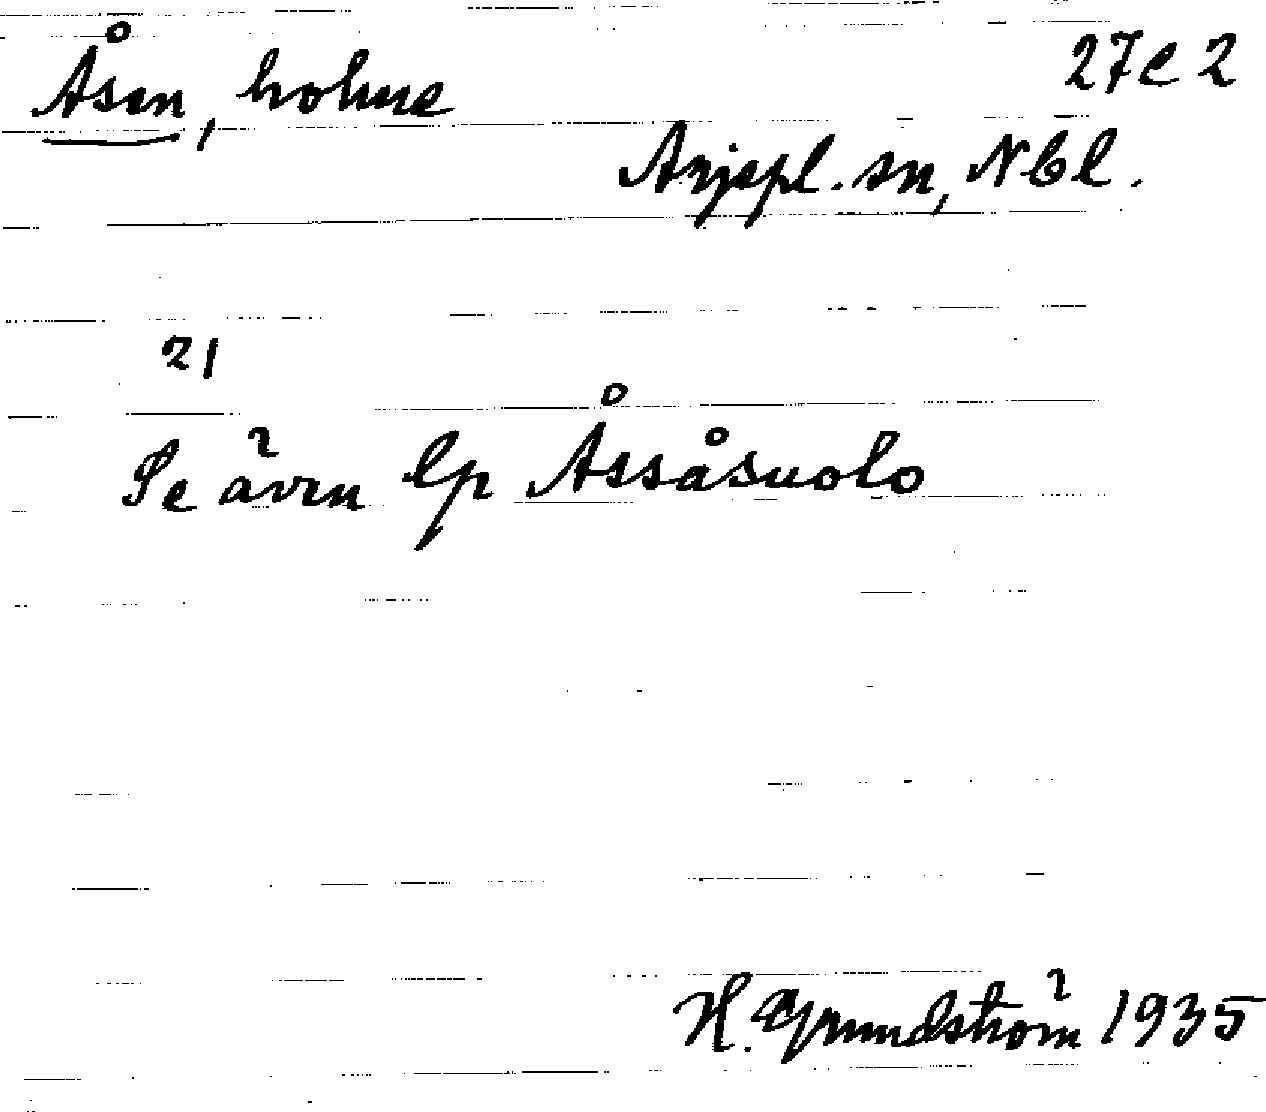 Åsen, holme 27e 2
Arjepl. sn, Nbl.
21
Se även lp Åssåsuolo
H. Grundström 1935